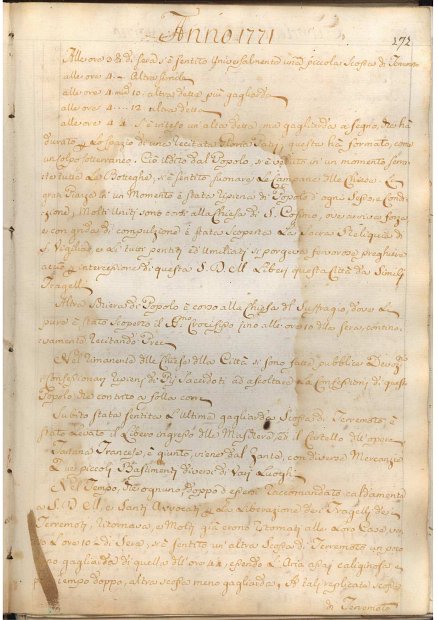 Anno 1771
172
Alle ore 3 di sera s'è sentito universalmente una piccola Scossa di Terremoto
alle ore 4 Altra simile
alle ore 4 altra detta più gagliarda
alle ore 4 12 altra detta
alle ore 4 s'è inteso un altra detta ma gagliarda a segno, che hà
durato lo spazio di una Recitata Gloria Patri, questa hà formato, come
un colpo sotterraneo. Ciò udito dal Popolo, s'è veduto in un momento
tutte le Botteghe, s'è sentito suonare le Campane delle Chiese. In
gran Piazza in un Momento è stata ripiena di Popolo d'ogni Sesso, e Condi
zione, Molti Uniti sono corsi alla Chiesa di S. Cosimo, ove a viva forza
e con grida di compunzione è stata scoperta La Sacra Reliquia di
S. e tutti pentiti ed Umiliati si porgeva fervorose preghiere
acciò a intercessione di questa S. D. M. Liberi questa Città da Simili
Flagelli
Altra Schiera di Popolo è corso alla Chiesa del Suffragio, dove
pure è stato scoperto il Crocifisso sino alle ore 10 della sera, contino
vamente Recitando Preci
Nel rimanente delle Chiese della Città si sono fatte pubbliche
e Confessionari ripieni di Pij Sacerdoti ad ascoltare Le Confessioni di questo
Popolo che contrito a folla
Subito stata sentita L'ultima gagliarda Scossa di Terremoto, è
stato Levato il Libero ingresso delle Maschere, ed il Cartello dell'opera
Tartana Francese è giunto, viene dal Zante, con diverse Mercanzie
e Due piccoli Bastimenti diversi da Varj Luoghi
Nel Tempo, che ognuno doppo d'essersi raccomandato caldamente
a S. D. M. e Santi Avvocati La Liberazione dei Flagelli del
Terremoti, ritornava, e Molti già erono ritornati alle Loro Case
s'è sentito un'altra Scossa di Terremoto un poco
meno gagliarda di quella dell'ore 4 4, essendo L'Aria assai caliginosa
tempo doppo, altra scossa meno gagliarda. A tali replicate Scosse
di Terremoto